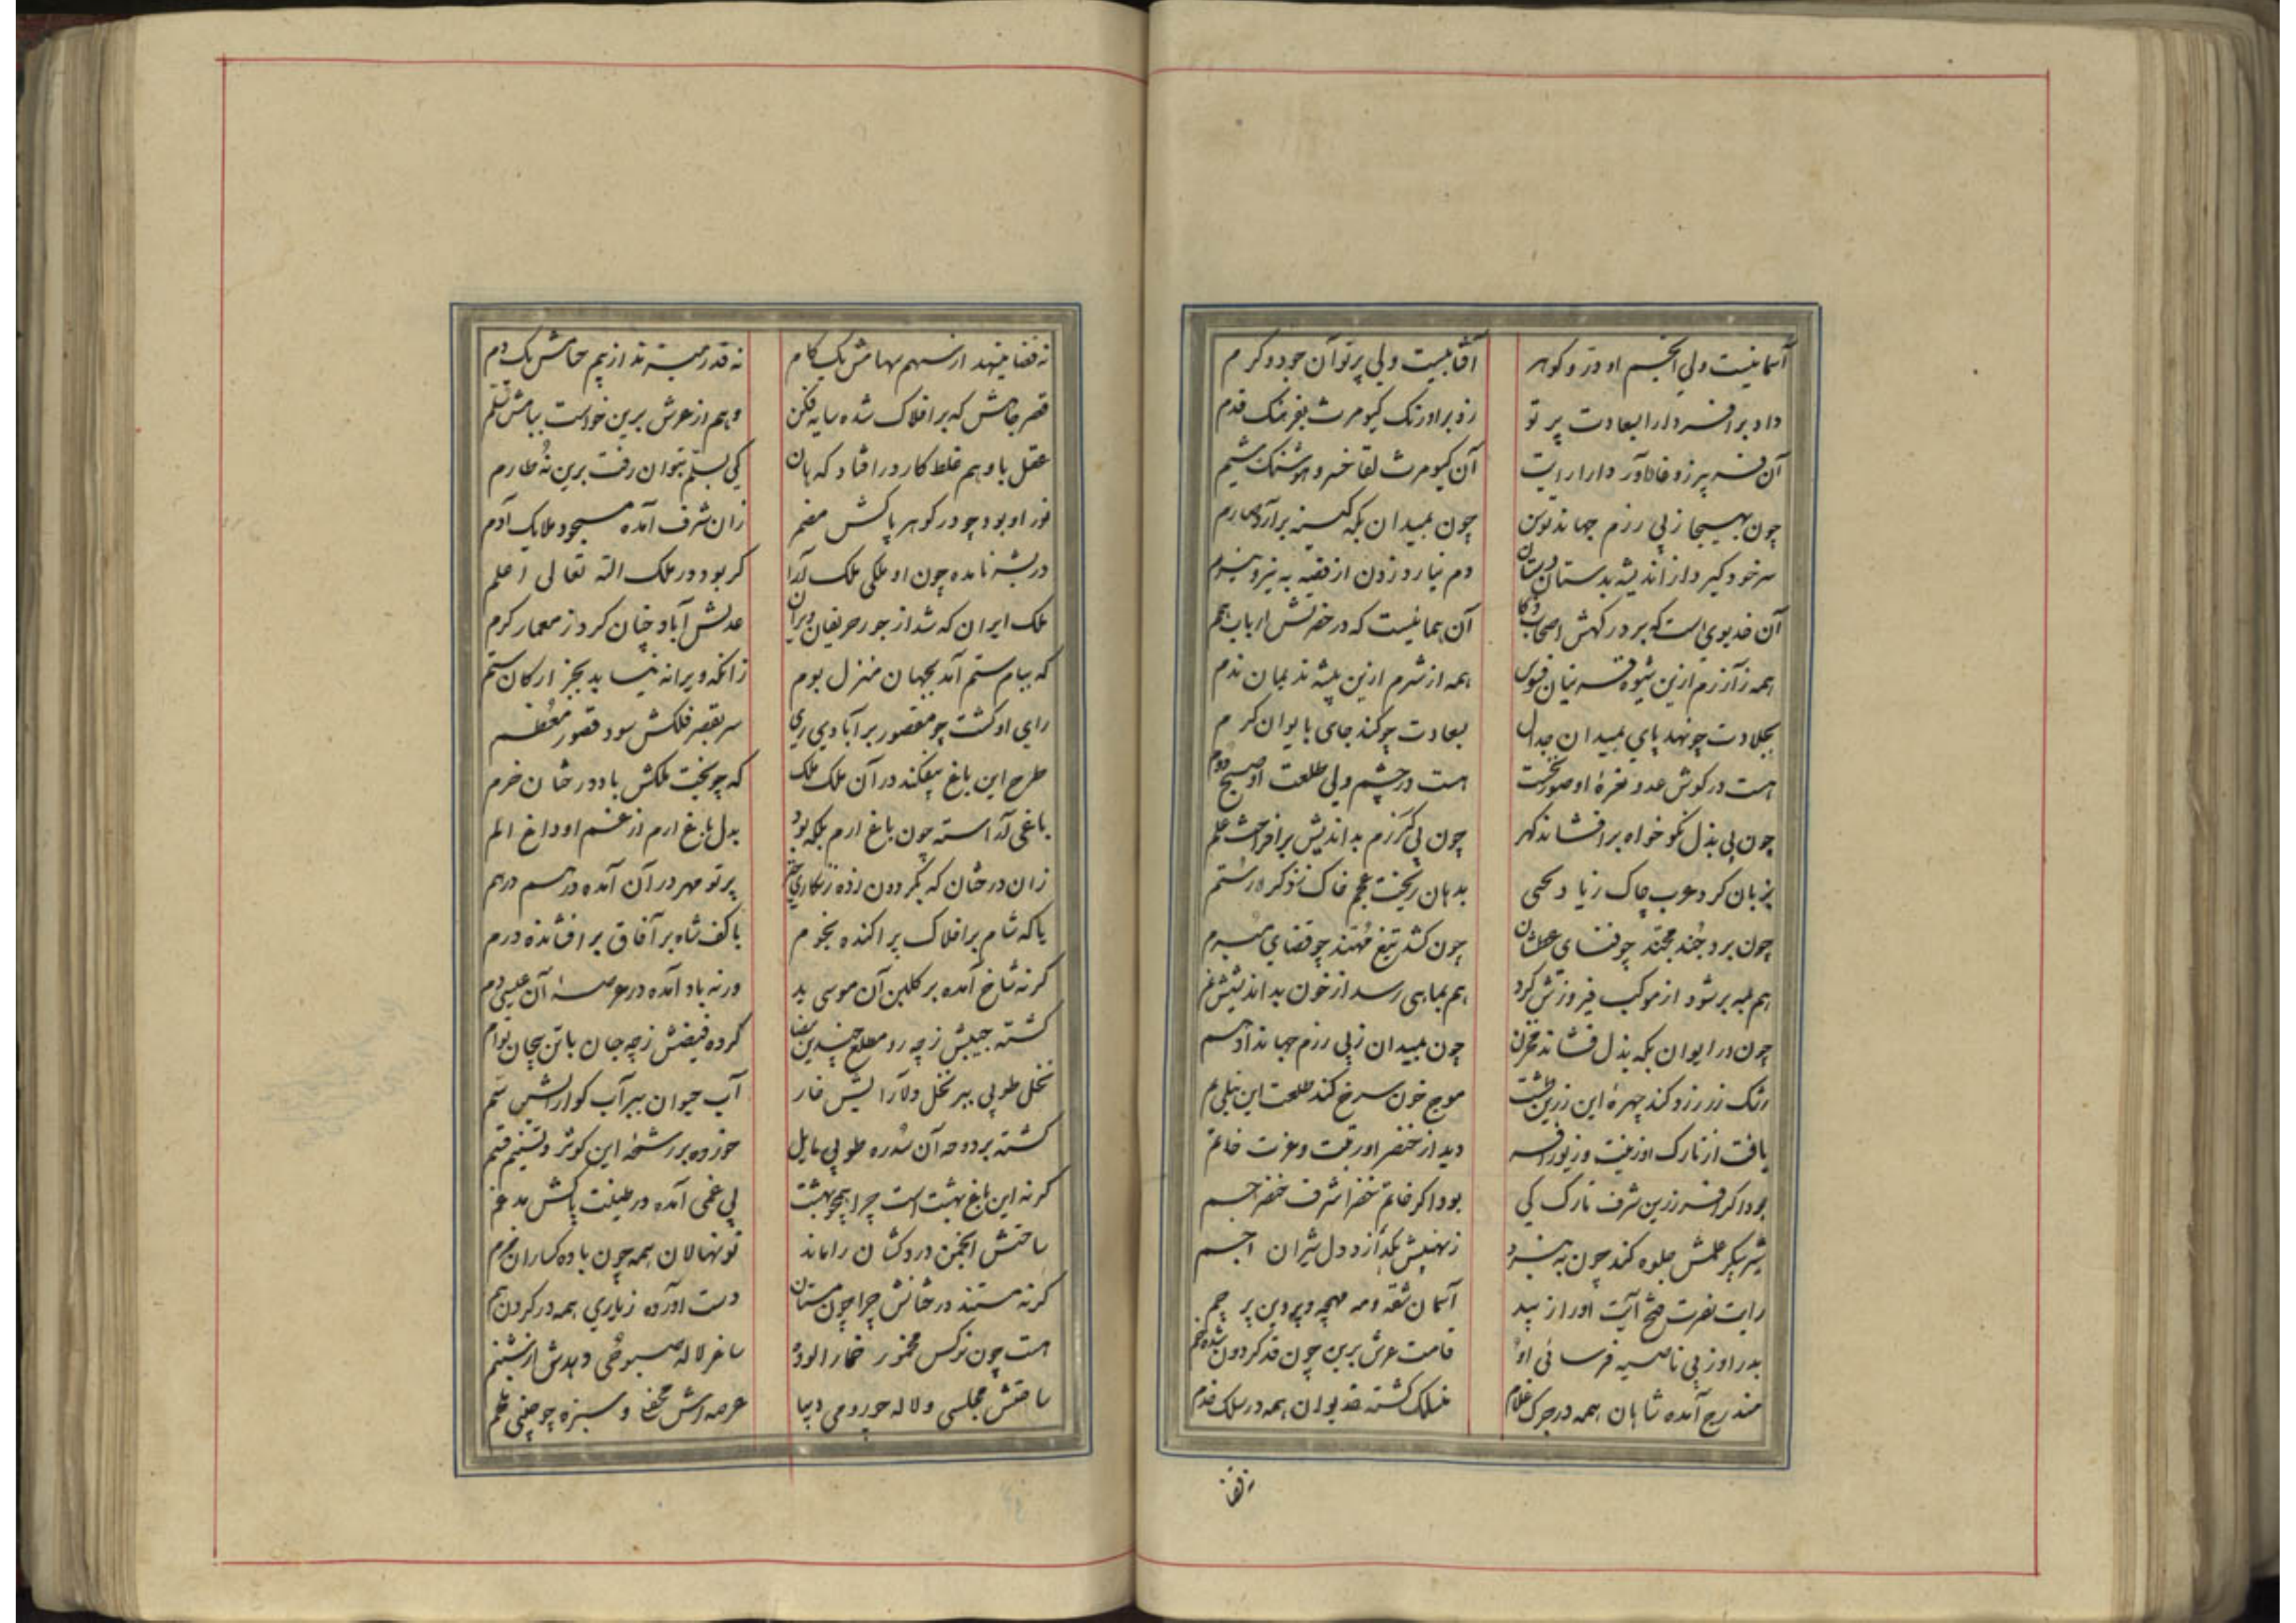 آسمانیست ولی انجم او در و کوهر افتابیست ولی پرتو آن جود و کرم
داد بر افسر دارا بسعادت پرتو زد بر اورنک کیومرث بفرهنک قدم
آن کیومرث لقا خسرو هوشنک شیم
چون بهیجا ز پی رزم جهاند توسن چون بمیدان بکه کینه برآرد
سر خود کیرد از اندیشه بدستان دستان دم نیارد زدن از
آن خدیوی است که بر درکهش اصحاب آن همانیست که در حضرتش ارباب همم
همه ز آزرم ازین شیوه همه از شرم ازین پیشه ندیمان ندم
بجلادت چو نهد پای بمیدان جدال بسعادت چو کند جای بایوان کرم
هست در کوش عدو نعرهٔ او صور نخست هست در چشم ولی طلعت او صبح دوم
چون پی بذل نکو خواه برافشاند کهر چون پی رزم بداندیش برافراخت علم
بزبان کرد عرب چاک ز یاد یحیی بدهان ریخت عجم خاک ز ذکر رستم
چون برد جند مجند چو قضای عطشان چون کشد تیغ مهند چو قضای مبرم
هم بمه بر شود از موکب فیروزش کرد هم بماهی رسد از خون بداندیشش نم
چون در ایوان بکه بذل فشاند مخزن چون بمیدان ز پی رزم جهاند ادهم
رنک زر زرد کند چهرهٔ این زرین طشت موج خون سرخ کند طلعت این نیلی یم
یافت از تارک او زینت و زیور افسر دید از خنصر او رتبت و عزت خاتم
بود اکر افسر زرین شرف تارک کی بود اکر خاتم خضرا شرف خنصر جم
شیر پیکر علمش جلوه کند چون به نبرد ز نهیبش بکدازد دل شیران اجم
رایت نصرت فتح آیت او را آسمان شقه و مه مهچه و پروین پرچم
بدر او ز پی ناصیه فرسائی او قامت عرش برین چون قد کردون شده خم
مندرج آمده شاهان همه در جرک غلام منسلک کشته خدیوان همه در سلک خدم
نه قضا
نه قضا مینهد از سهم سهامش یک کام نه قدر میزند از بیم حسامش یک دم
قصر جاهش که بر افلاک شده سایه فکن وهم از عرش برین خواست ببامش سلم
عقل با وهم غلط کار در افتاد که هان کی بسلم بتوان رفت برین نه طارم
نور او بود چو در کوهر پاکش مضمر زان شرف آمده مسجود ملایک آدم
در بشر نامده چون او ملکی ملک آرا کر بود در ملک الله تعالی اعلم
ملک ایران که شد از جور حریفان ویران عدلش آباد چنان کرد ز معمار کرم
که ببام ستم آمد بجهان منزل بوم زانکه ویرانه نیابد بجز ارکان ستم
رای او کشت چو مقصور بر آبادی ری سر بقصر فلکش سود قصور معظم
طرح این باغ بیفکند در آن ملک ملک که چو بخت ملکش باد درختان خرم
باغی آراسته چون باغ ارم بلکه بود بدل باغ ارم از غم او داغ الم
زان درختان که بکردون زده زنکاری پرتو مهر در آن آمده درهم درهم
یا که شام بر افلاک پراکنده نجوم یا کف شاه بر آفاق برافشانده درم
کر نه شاخ آمده بر کلبن آن موسی ید ورنه باد آمده در عرصهٔ آن عیسی دم
کشته جیبش ز چه رو مطلع چندین بیضا کرده فیضش ز چه جان با تن بیجان توام
نخل طوبی ببر نخل دلارایش خار آب حیوان ببر آب کوارایش سم
کشته بر دوحه آن سدره طوبی مایل خورده بر رشحه این کوثر و تسنیم قسم
کر نه این باغ بهشت است چرا همچو بهشت بی غمی آمده در طینت پاکش مدغم
ساحتش انجمن دردکشان را ماند نونهالان همه چون باده کساران
کر نه مستند درختانش چرا چون مستان دست آورده ز یاری همه در کردن هم
هست چون نرکس مخمور خمار آلوده ساغر لاله صبوحی دهدش از شبنم
ساحتش مجلسی و لاله چو رومی دیبا عرصه اش محفل و سبزه چو